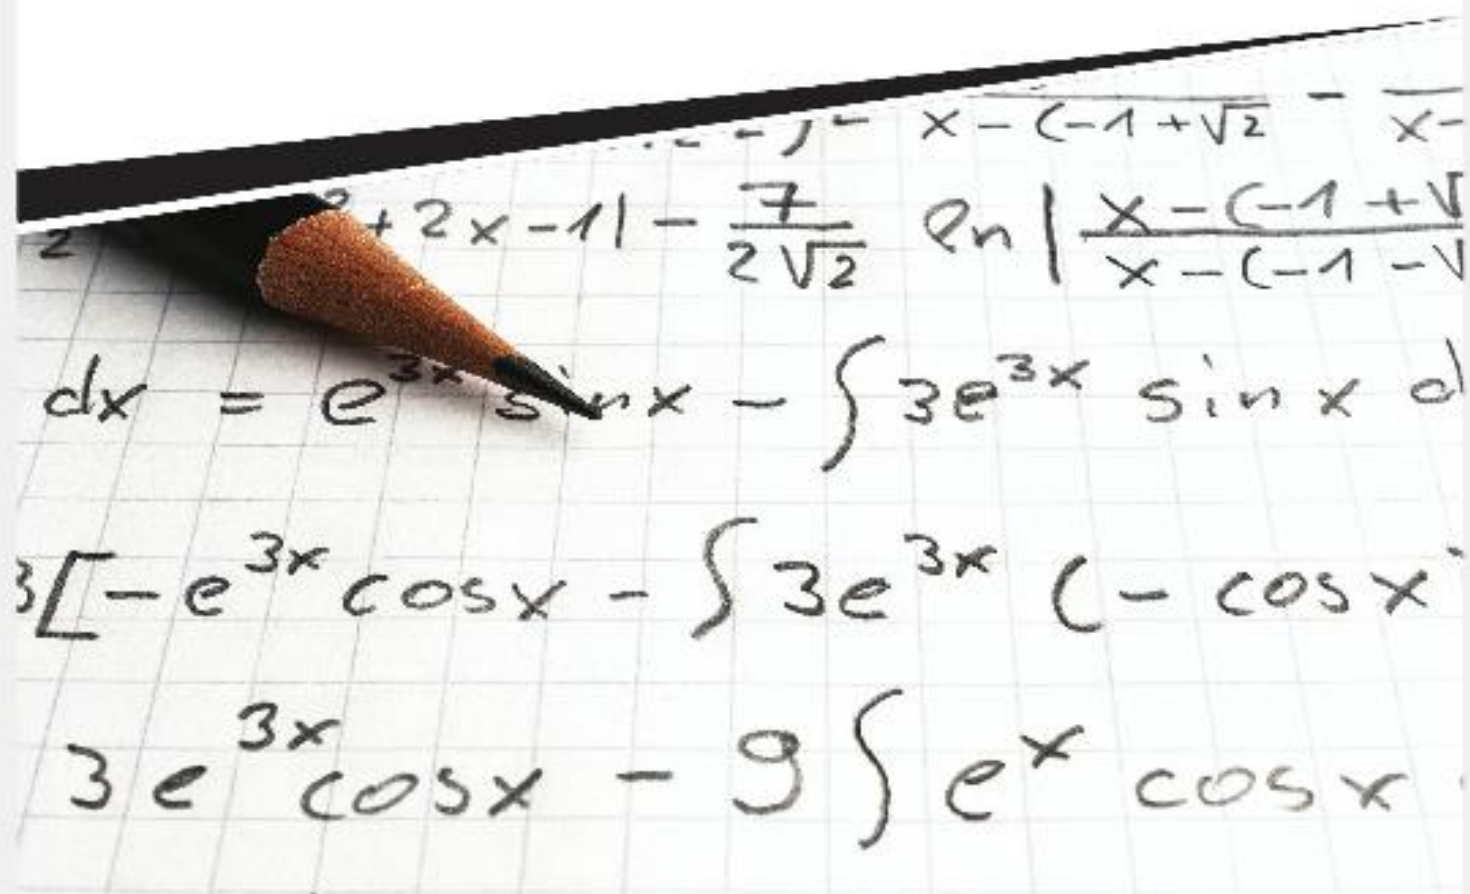 x - (-1 + √2 - x -
2 ² + 2x - 1| - 7/(2√2) ln | (x - (-1 + √)/(x - (-1 - √)
dx = e^{3x} sin x - ∫ 3e^{3x} sin x d
3[-e^{3x} cos x - ∫ 3e^{3x} (- cos x
3e^{3x} cos x - 9 ∫ e^x cos x